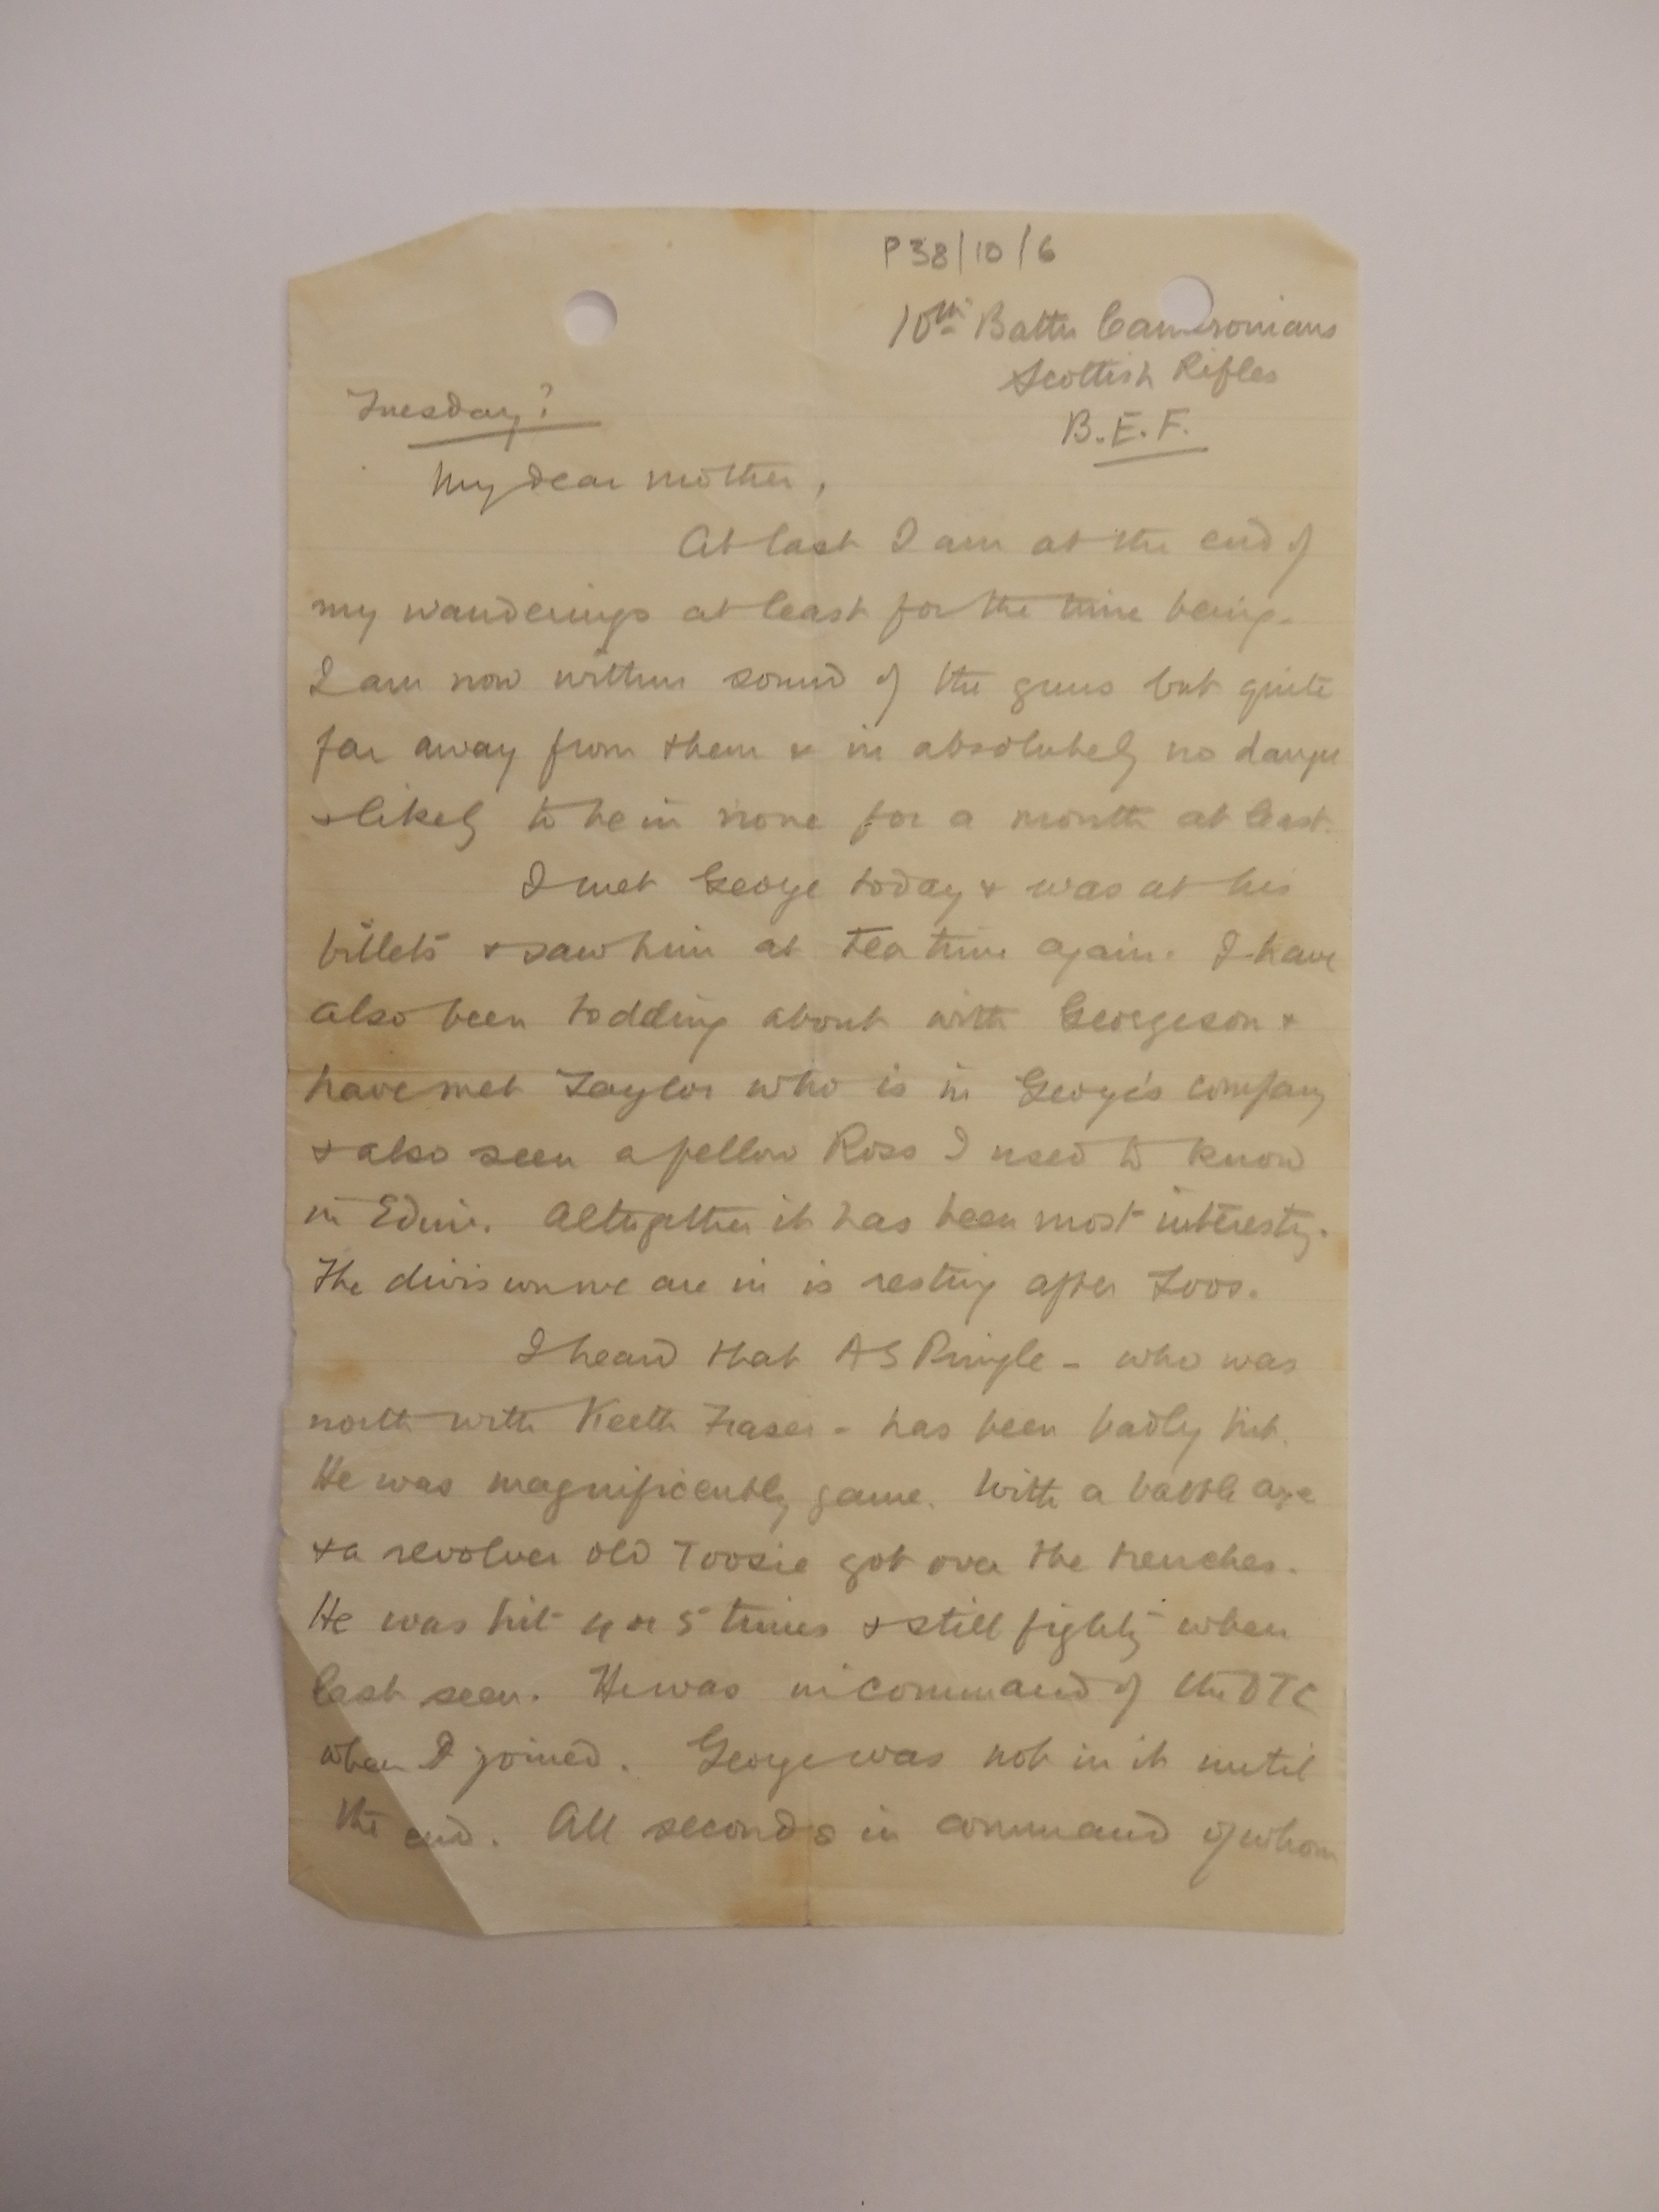 P38/10/6
10th Battn Cameronians
Scottish Rifles
B.E.F.
Tuesday?
My dear mother,
At last I am at the end of
my wanderings at least for the time being.
I am now within sound of the guns but quite
far away from them & in absolutely no danger
& likely to be in none for a month at least.
I met George today & was at his
billets & saw him at tea time again. I have
also been todding about with Georgeson &
have met Taylor who is in George's company
& also seen a fellow Ross I used to know
in Edin. Altogether it has been most interestg.
The division we are in is resting after Loos.
I heard that AS Pringle - who was
north with Keith Fraser - has been badly hit.
He was magnificently game. With a battle axe
& a revolver old Toosie got over the trenches.
He was hit 4 or 5 times & still fightg when
last seen. He was in command of the OTC
when I joined. George was not in it until
the end. All seconds in command of whom